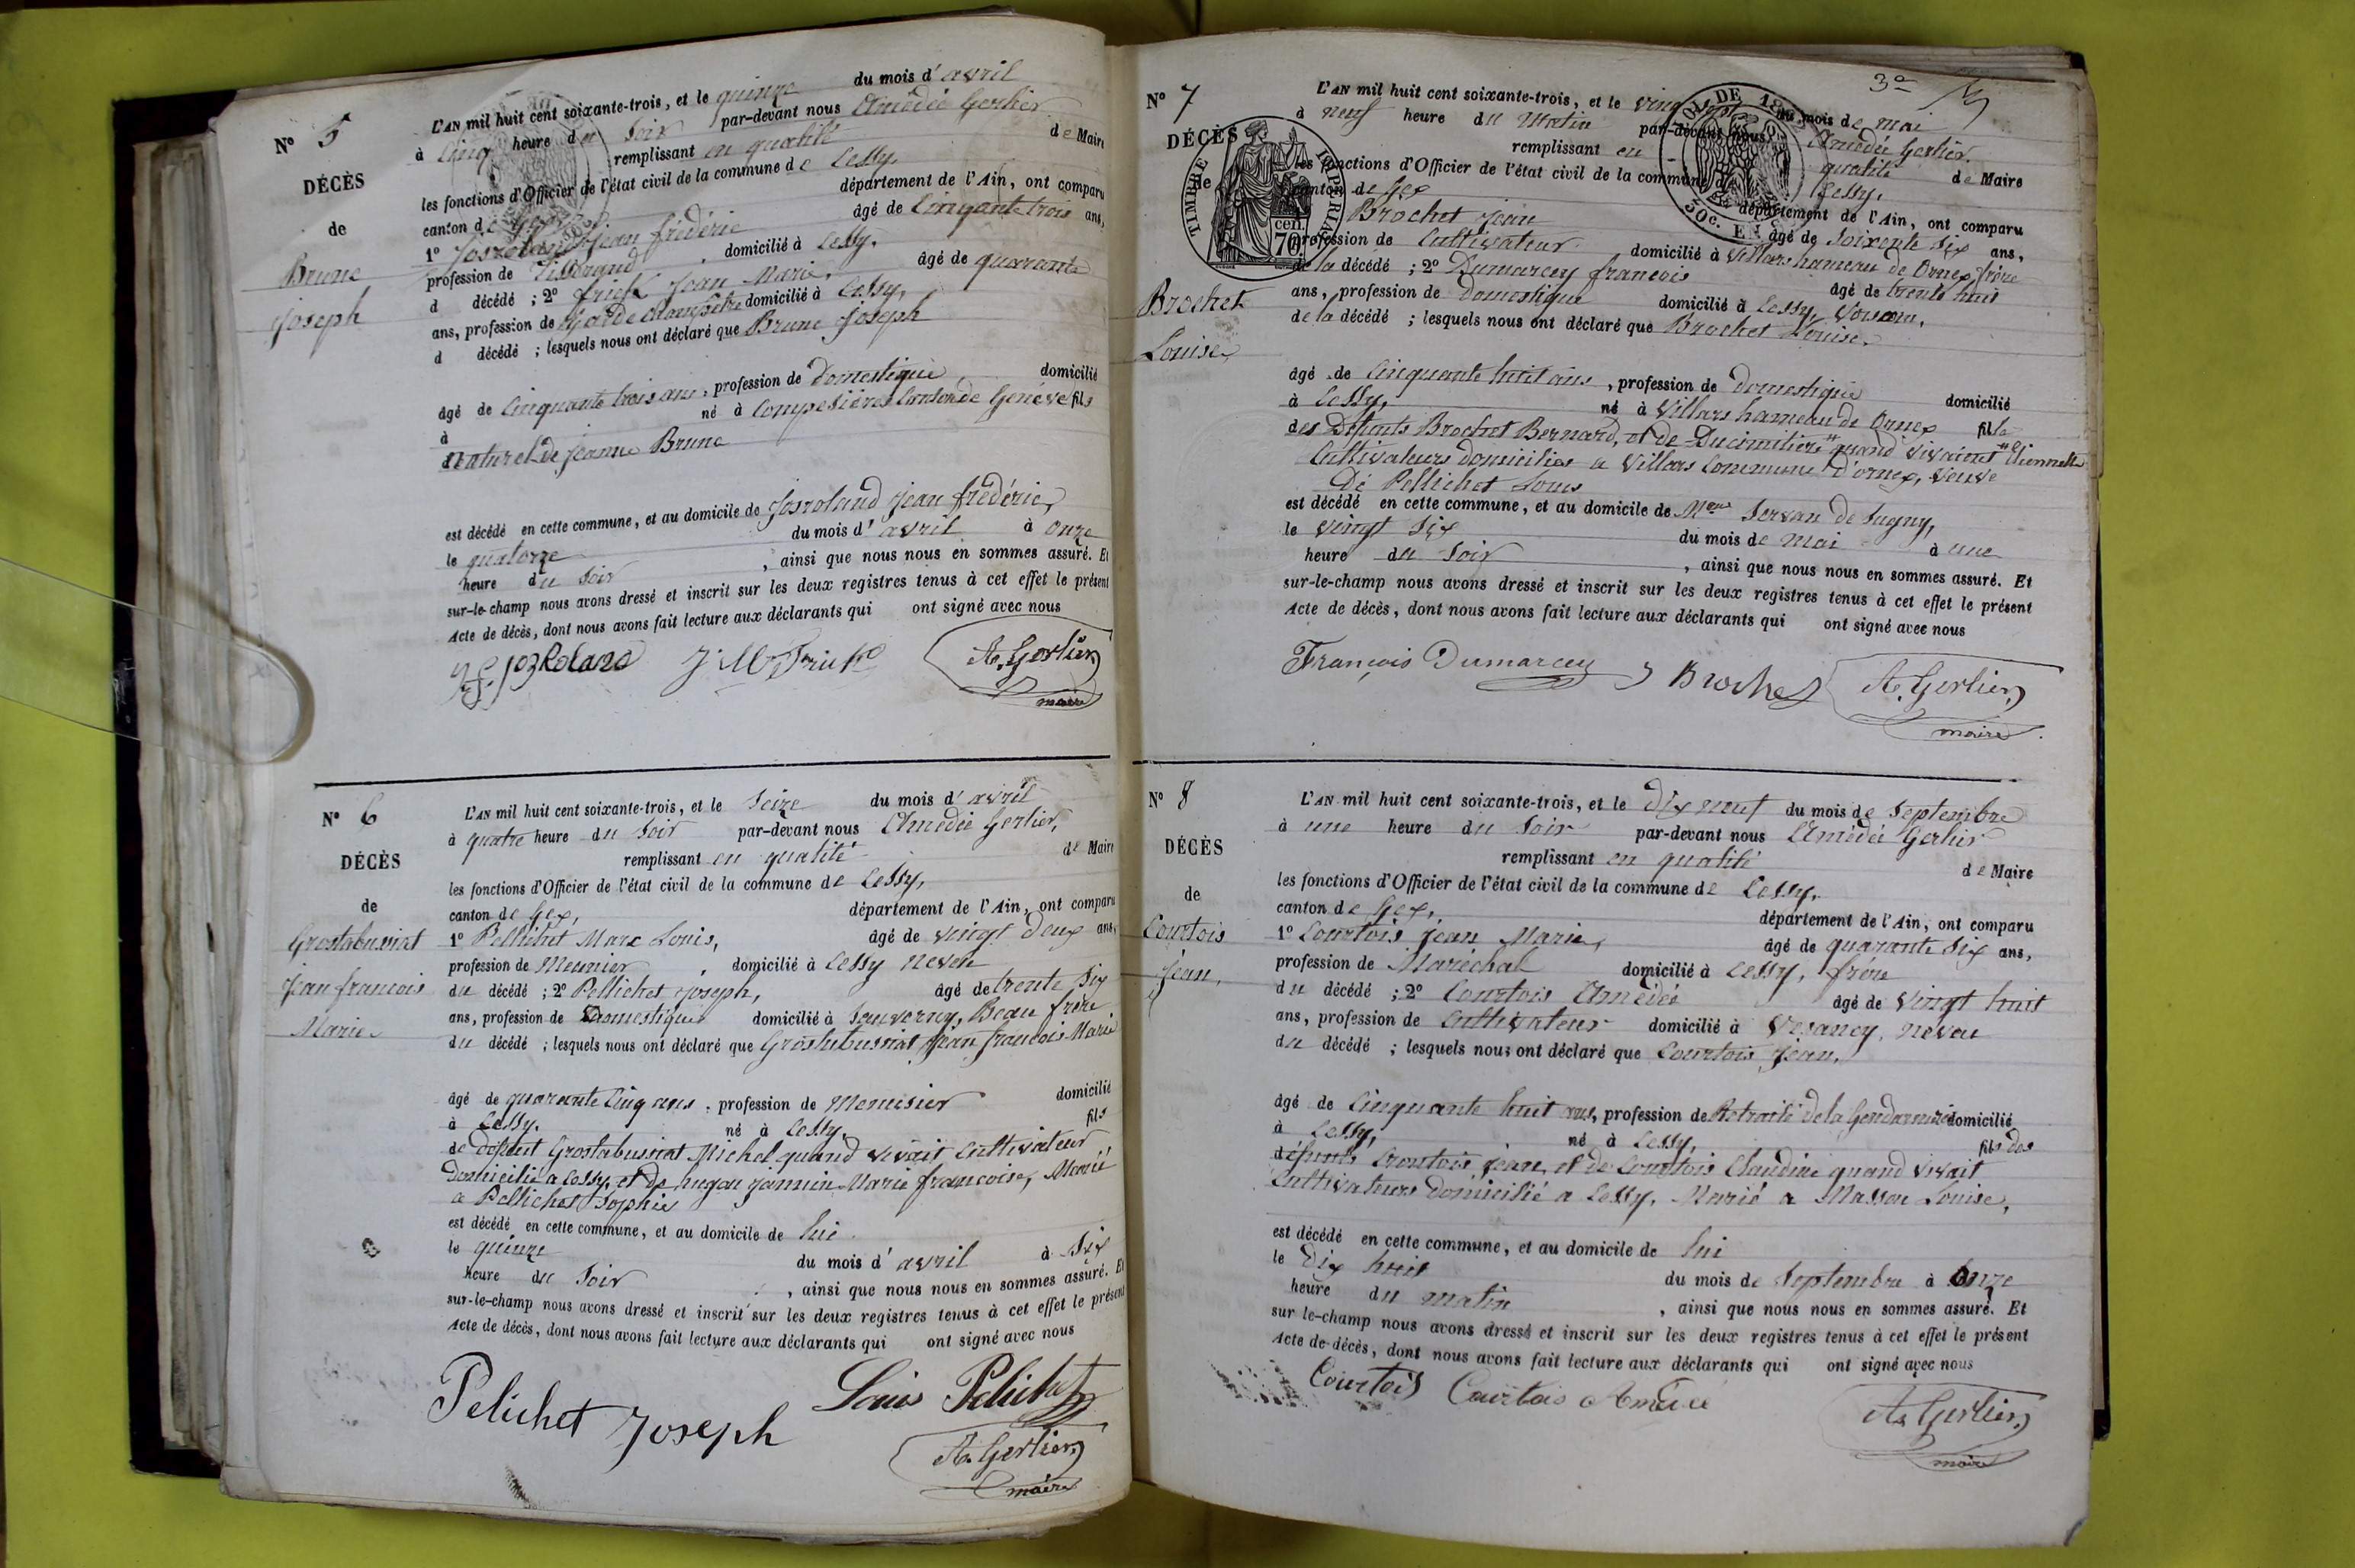 N° 5
DÉCÈS
de
Brune
Joseph
L'AN mil huit cent soixante-trois, et le quinze du mois d'avril
à cinq heure du Soir par-devant nous Amédée Gerlier
remplissant en qualité de Maire
les fonctions d'Officier de l'état civil de la commune de Cessy,
canton de Gex département de l'Ain, ont comparu
1° Josroland Jean frédéric âgé de Cinquante trois ans,
profession de domicilié à Cessy.
d décédé ; 2° frick Jean Marie, âgé de quarante
ans, profession de Garde Champêtre domicilié à Cessy,
d décédé ; lesquels nous ont déclaré que Brune Joseph
âgé de Cinquante trois ans, profession de domestique domicilié
à né à Compesières Canton de Genève fils
Naturel de Jeanne Brune
est décédé en cette commune, et au domicile de Josroland Jean frédéric,
le quatorze du mois d'avril à onze
heure du Soir , ainsi que nous nous en sommes assuré. Et
sur-le-champ nous avons dressé et inscrit sur les deux registres tenus à cet effet le présent
Acte de décès, dont nous avons fait lecture aux déclarants qui ont signé avec nous
J M Frick A. Gerlier
maire
N° 6
DÉCÈS
de
Grostabussiat
Jean francois
Marie
L'AN mil huit cent soixante-trois, et le Seize du mois d'avril
à quatre heure du Soir par-devant nous Amédée Gerlier,
remplissant en qualité de Maire
les fonctions d'Officier de l'état civil de la commune de Cessy,
canton de Gex, département de l'Ain, ont comparu
1° Pellichet Marc Louis, âgé de vingt deux ans,
profession de Meunier , domicilié à Cessy neveu
du décédé ; 2° Pellichet Joseph, âgé de trente Six
ans, profession de domestique domicilié à Sauverny, Beau frère
du décédé ; lesquels nous ont déclaré que Grostabussiat Jean francois Marie
âgé de quarante Cinq ans , profession de Menuisier domicilié
à Cessy. né à Cessy. fils
de défunt Grostabussiat Michel quand vivait Cultivateur
Domicilié a Cessy, et de Marie francoise, Marié
a Pellichet Sophie
est décédé en cette commune, et au domicile de lui
le quinze du mois d'avril à Six
heure du Soir , ainsi que nous nous en sommes assuré. Et
sur-le-champ nous avons dressé et inscrit sur les deux registres tenus à cet effet le présent
Acte de décès, dont nous avons fait lecture aux déclarants qui ont signé avec nous
Pelichet Joseph Louis Pelichet
A. Gerlier
maire
3e
N° 7
DÉCÈS
de
Brochet
Louise
TIMBRE IMPERIAL
70 cen.
50c. EN SUS
L'AN mil huit cent soixante-trois, et le vingt sept du mois de mai
à neuf heure du Matin par-devant nous Amédée Gerlier.
remplissant en qualité de Maire
les fonctions d'Officier de l'état civil de la commune de Cessy,
canton de Gex département de l'Ain, ont comparu
Brochet Jean âgé de Soixante Six ans,
profession de Cultivateur domicilié à Villars hameau de Ornex, frère
de la décédé ; 2° Dumarcey francois âgé de trente huit
ans, profession de domestique domicilié à Cessy, Voisin,
de la décédé ; lesquels nous ont déclaré que Brochet Louise
âgé de Cinquante huit ans , profession de domestique domicilié
à Cessy, né à Villars hameau de Ornex fille
des Défunts Brochet Bernard, et de Ducimitière # quand vivaient # Etiennette
Cultivateurs domiciliés a Villars Commune d'Ornex, Veuve
De Pellichet Louis
est décédé en cette commune, et au domicile de Mme Servan de Sugny,
le vingt Six du mois de Mai à une
heure du Soir , ainsi que nous nous en sommes assuré. Et
sur-le-champ nous avons dressé et inscrit sur les deux registres tenus à cet effet le présent
Acte de décès, dont nous avons fait lecture aux déclarants qui ont signé avec nous
François Dumarcey J Brochet A. Gerlier
maire
N° 8
DÉCÈS
de
Courtois
Jean,
L'AN mil huit cent soixante-trois, et le Dix neuf du mois de Septembre
à une heure du Soir par-devant nous Amédée Gerlier
remplissant en qualité de Maire
les fonctions d'Officier de l'état civil de la commune de Cessy,
canton de Gex, département de l'Ain, ont comparu
1° Courtois Jean Marie, âgé de quarante Six ans,
profession de Maréchal domicilié à Cessy, frère
du décédé ; 2° Courtois Amédée âgé de vingt huit
ans, profession de Cultivateur domicilié à Vesancy, neveu
du décédé ; lesquels nous ont déclaré que Courtois Jean,
âgé de Cinquante huit ans, profession de Retraité de la Gendarmerie domicilié
à Cessy, né à Cessy, fils des
défunts Courtois Jean, et de Courtois Claudine quand vivait
Cultivateurs domicilié a Cessy, Marié a Masson Louise,
est décédé en cette commune, et au domicile de lui
le Dix huit du mois de Septembre à Onze
heure du matin , ainsi que nous nous en sommes assuré. Et
sur le-champ nous avons dressé et inscrit sur les deux registres tenus à cet effet le présent
Acte de décès, dont nous avons fait lecture aux déclarants qui ont signé avec nous
Courtois Courtois Amédée A. Gerlier
maire